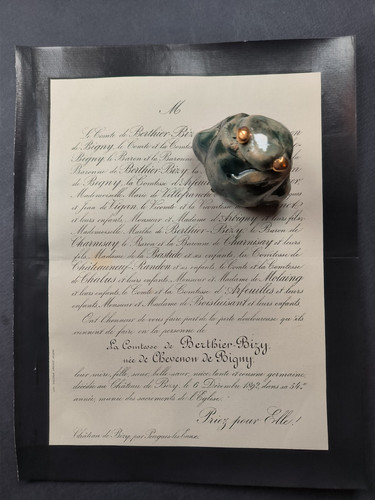 M
Le Comte de Berthier-Bizy
de Bigny, le Comte et la Comtesse
Bigny, le Baron et la Baronne
Baronne de Berthier-Bizy, la
de Bigny, la Comtesse d'Arfeuilles
Mademoiselle Marie de Villefranche
et Jean de Vogüé, le Vicomte et la Vicomtesse
et leurs enfants, Monsieur et Madame d'Aubigny et leurs fils,
Mademoiselle Marthe de Berthier-Bizy, le Baron de
Charnisay, le Baron et la Baronne de Charnisay et leurs
fils, Madame de la Bastide et ses enfants, la Comtesse de
Châteauneuf-Randon et ses enfants, le Comte et la Comtesse
de Chalus et leurs enfants, Monsieur et Madame de Molaing
et leurs enfants, le Comte et la Comtesse d'Arfeuilles et leurs
enfants, Monsieur et Madame de Boisluisant et leurs enfants.
Ont l'honneur de vous faire part de la perte douloureuse qu'ils
viennent de faire en la personne de
La Comtesse de Berthier-Bizy,
née de Chevenon de Bigny,
leur mère, fille, sœur, belle-sœur, nièce, tante et cousine germaine,
décédée au Château de Bizy, le 6 Décembre 1892, dans sa 54e
année, munie des sacrements de l'Église.
Priez pour Elle!
Château de Bizy, par Pougues-les-Eaux.